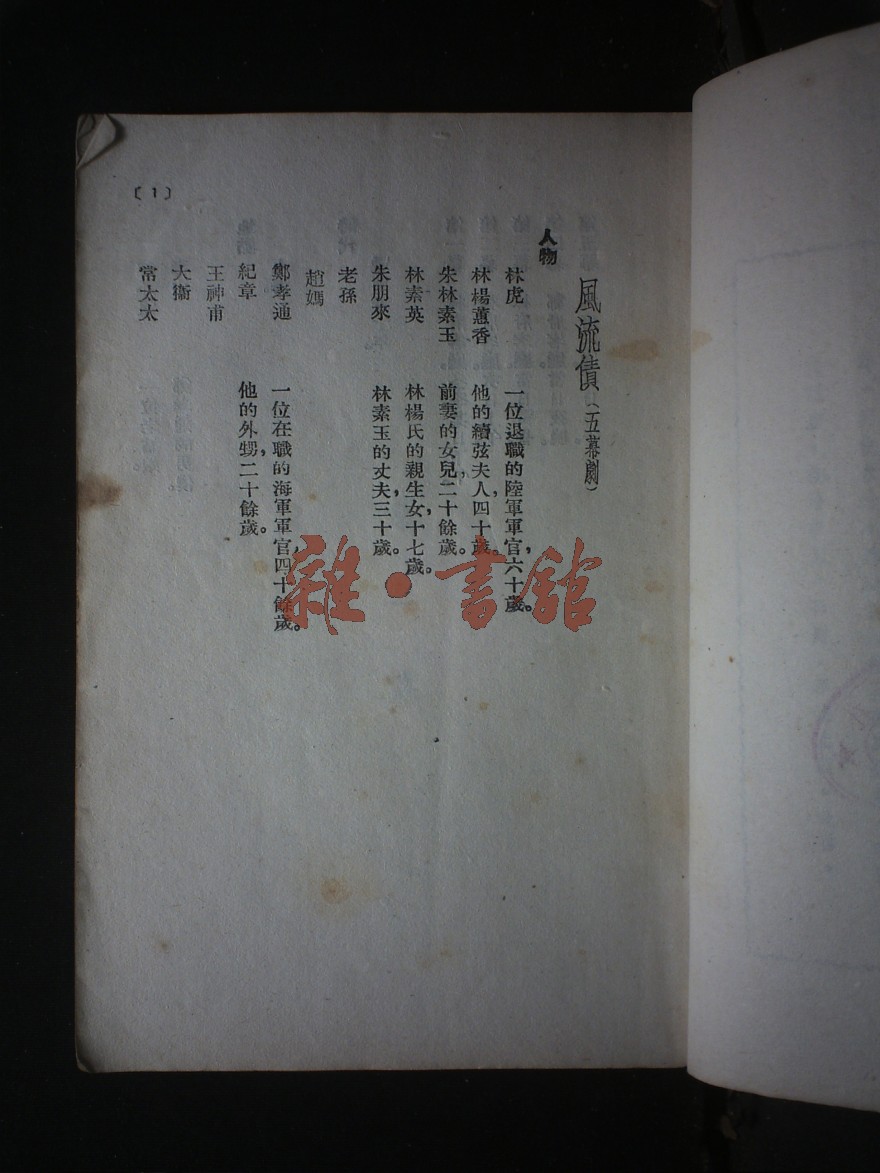 風流債（五幕劇）
人物
林虎　一位退職的陸軍軍官，六十歲。
林楊蕙香　他的續弦夫人，四十歲。
朱林素玉　前妻的女兒，二十餘歲。
林素英　林楊氏的親生女，十七歲。
朱朋來　林素玉的丈夫，三十歲。
老孫
趙媽
鄭孝通　一位在職的海軍軍官，四十餘歲。
紀章　他的外甥，二十餘歲。
王神甫
大衞
常太太
〔1〕
雜·書館